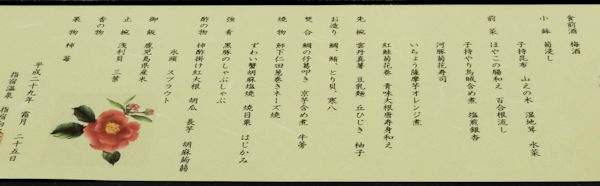 食前酒 梅酒
小鉢 菊浸し
子持昆布 山えの木 湿地茸 水菜
前菜 ほやこの腸和え 百合根流し
子持やり烏賊含め煮 塩煎銀杏
河豚菊花寿司
いちょう薩摩芋オレンジ煮
紅鮭菊花巻 青味大根唐寿身和え
先椀 雲丹真薯 豆乳麺 丘ひじき 柚子
お造り 鯛、鮪、とり貝、寒八
焚合 鯛の仔葛叩き 京芋含め煮 牛蒡
焼物 鰤下仁田葱巻きチーズ焼
ずわい蟹胡麻塩焼 焼目栗 はじかみ
強肴 黒豚のしゃぶしゃぶ
酢の物 柿酢掛け紅大根 胡瓜 長芋 胡麻蒟蒻
氷頭 スプラウト
御飯 鹿児島県産米
止椀 浅利貝 三葉
香の物
果物 柿 苺
平成二十九年 霜月 二十五日
指宿温泉 指宿白